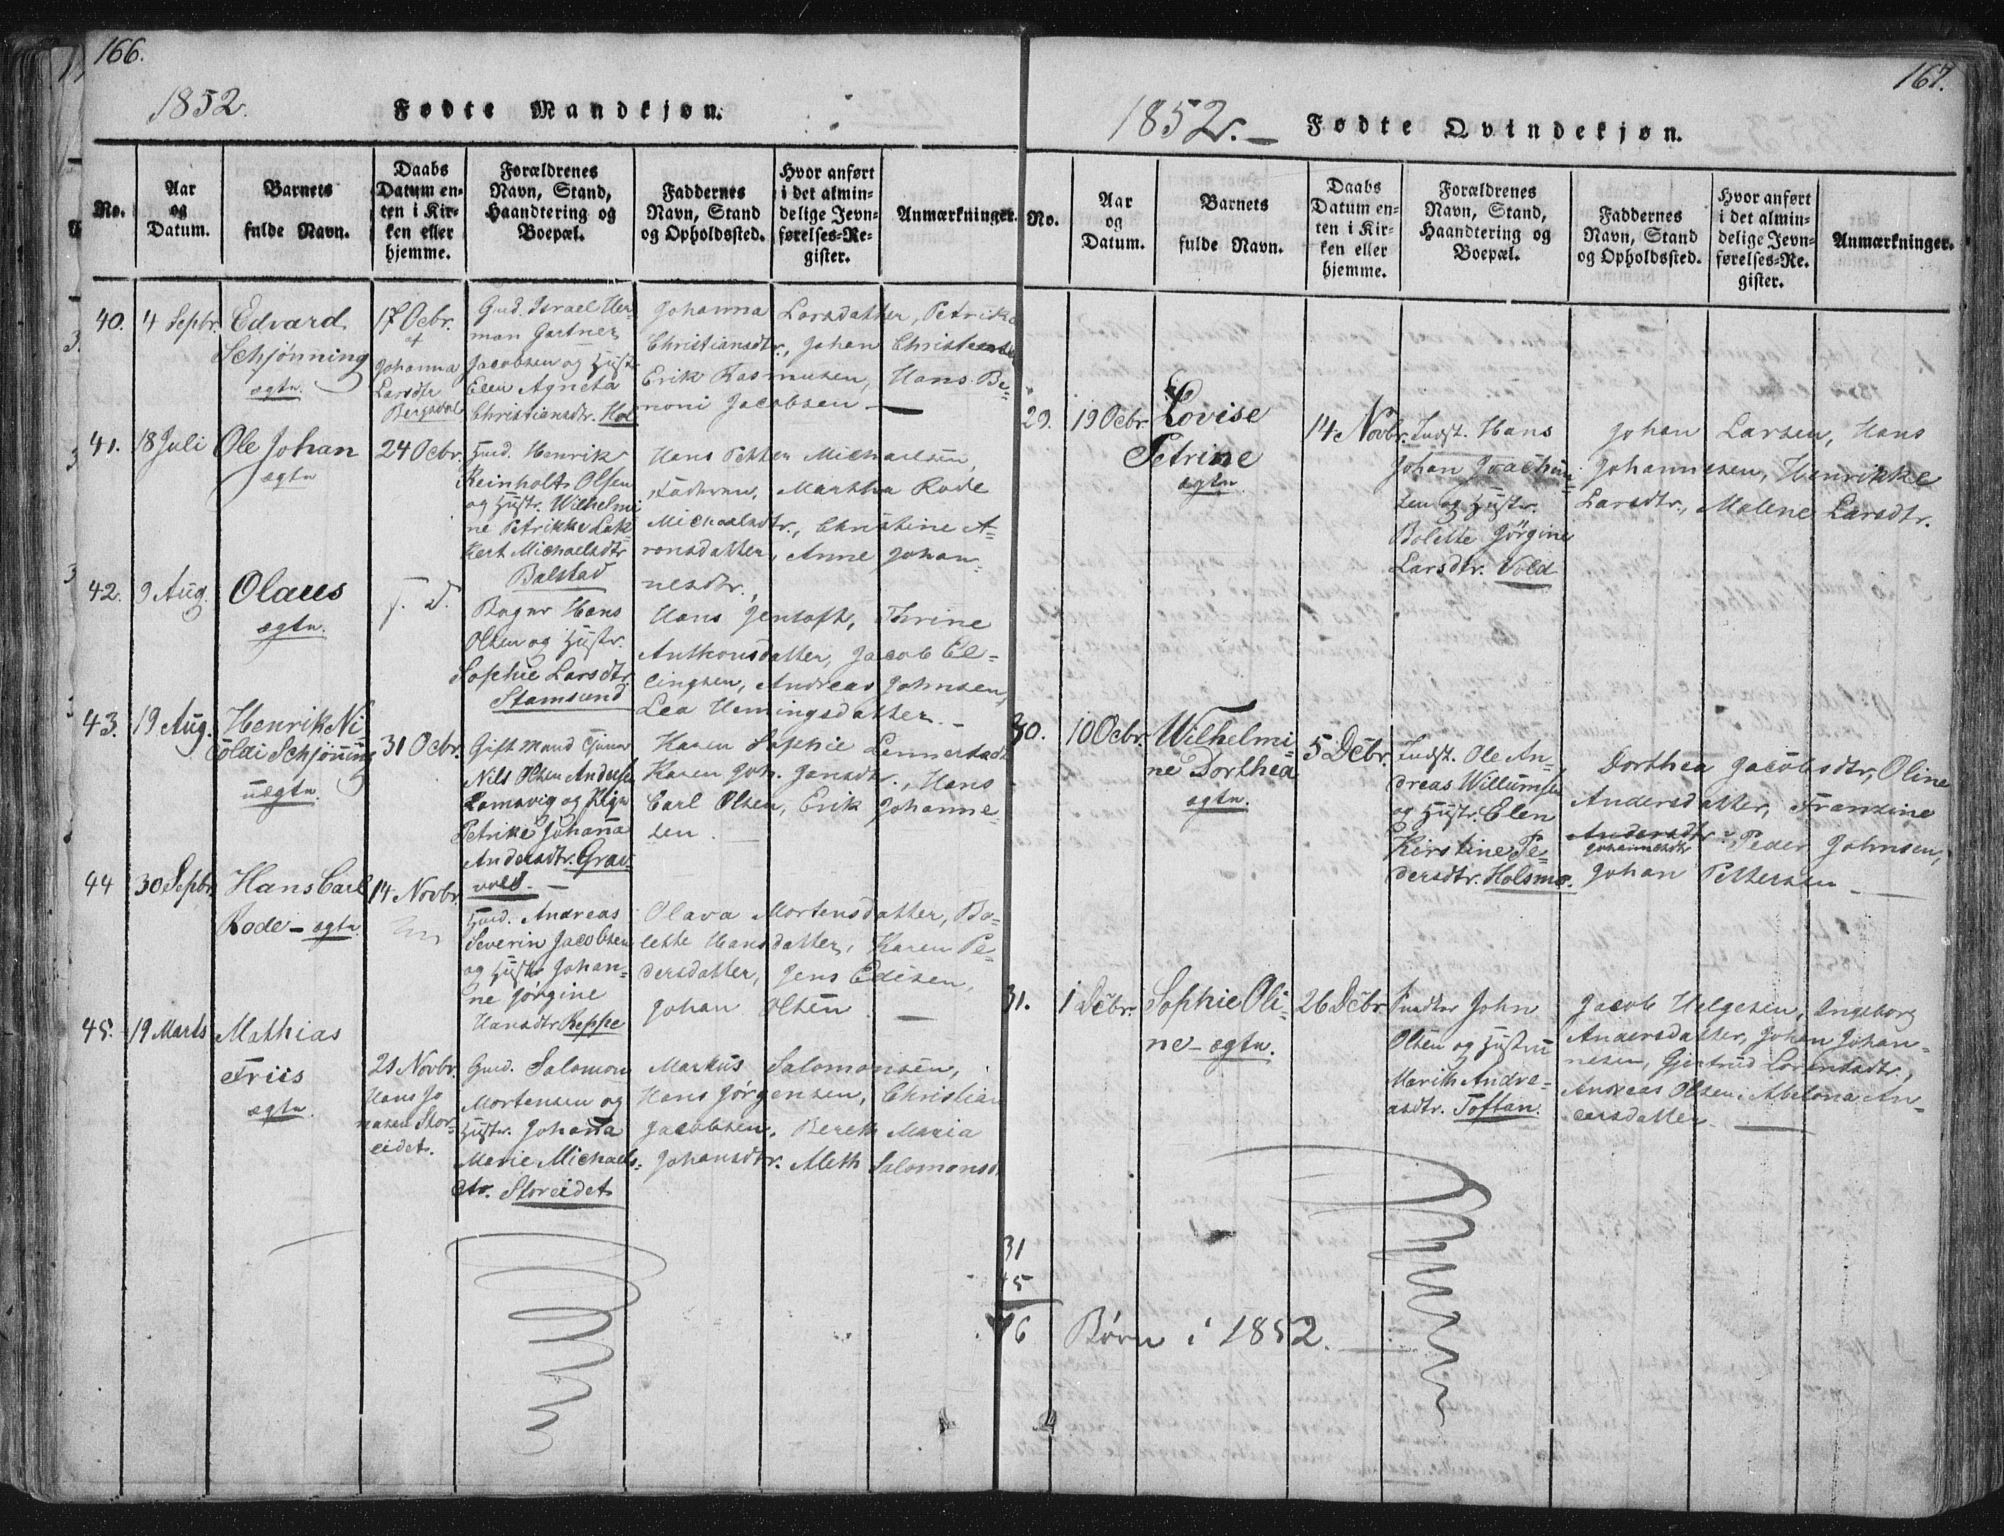 166.
1852.
Fødte Mandkjøn.
No.
Aar
og
Datum.
Barnets
fulde Navn.
Daabs
Datum en-
ten i Kir-
ken eller
hjemme.
Forældrenes
Navn, Stand,
Haandtering og
Boepæl.
Faddernes
Navn, Stand
og Opholdssted.
Hvor anført
i det almin-
delige Jevn-
førelses-Re-
gister.
Anmærkninger.
40.
4 Sepbr.
Edvard
Schjønning
ægte.
17 Ocbr.
Johanna
Larsdtr
Bergsdal
Gmd. Israel Her
man Gartner
Jacobsen og Hustr
Elen Agneta
Christiansdtr. Hol
Johanna Larsdatter, Petrike
Christiansdtr., Johan
Erik Rasmusen, Hans Be-
noni Jacobsen —
41.
18 Juli
Ole Johan
ægte
24 Ocbr.
Henrik
Reinholt Olsen
og Hustr. Wilhelmi
ne Petrikke Lak
kert Michaelsdtr
Balstad
Hans Petter Michaelsen,
Martha Rode
Michaelsdtr., Christine A-
ronsdatter, Anne Johan-
nesdtr.,
42.
9 Aug.
Olaus
ægte.
f. d.
Hans
Olsen og Hustr.
Sophie Larsdtr
Stamsund
Hans Jentoft, Trine
Anthonsdatter, Jacob El-
lingsen, Andreas Johnsen,
Lea Hemingsdatter. -
43.
19 Aug.
Henrik Ni
colai Schjønning
uægte.
31 Ocbr.
Gift Mand
Nils Olsen
og Pige
Petrike Johana
Andersdtr. Grav
vold. —
Karen Sophie
Karen Joh. Jansdtr., Hans
Carl Olsen, Erik Johanne-
sen
44
30 Sepbr.
Hans Carl
Rode - ægte
14 Novbr
Andreas
Severin Jacobsen
og Hustr. Johan-
ne Jørgine
Hansdtr. Reppe
Olava Mortensdatter, Bo-
lette Hansdatter, Karen Pe-
dersdatter, Jens Edisen,
Johan Olsen —
45.
19 Marts
Mathias
Friis
ægte.
21 Novbr.
Hans Jo
nasen Stor-
eidet.
Gmd. Salomon
Mortensen og
Hustr. Johana
Marie Michaels-
dtr. Storeidet
Markus Salomonsen,
Hans Jørgensen, Christian
Jacobsen, Bereth Maria
Johansdtr. Meth Salomonsd.
167.
1852. —
Fødte Qvindekjøn.
No.
Aar
og
Datum.
Barnets
fulde Navn.
Daabs
Datum en-
ten i Kir-
ken eller
hjemme.
Forældrenes
Navn, Stand,
Haandtering og
Boepæl.
Faddernes
Navn, Stand
og Opholdssted.
Hvor anført
i det almin-
delige Jevn-
førelses-Re-
gister.
Anmærkninger.
29.
19 Ocbr.
Lovise
Petrine
ægte.
14 Novbr.
Indst. Hans
Johan Joachim-
sen og Hustr.
Bolette Jørgine
Larsdtr. Vold
Johan Larsen, Hans
Johannesen, Henrikke
Larsdtr., Malene Larsdtr.
30.
10 Ocbr.
Wilhelmi-
ne Dorthea
ægte.
5 Dcbr.
Indst. Ole An-
dreas Willumsen
og Hustr. Elen
Kirstine Pe-
dersdtr. Holsmo.
Dorthea Jacobsdtr, Oline
Andersdatter, Franzine
Andersdtr Johannesdtr Peder Johnsen,
Johan Pettersen —
31.
1 Dcbr.
Sophie Oli-
ne - ægte.
26 Dcbr
Indstr John
Olsen og Hustru
Marith Andre-
asdtr. Toftan.
Jacob Helgesen, Ingeborg
Andersdatter, Johan Johan-
nesen, Gjertrud Lorentsdtr.,
Andreas Olsen, Abelona An-
dersdatter. —
31
45
76 Børn i 1852.